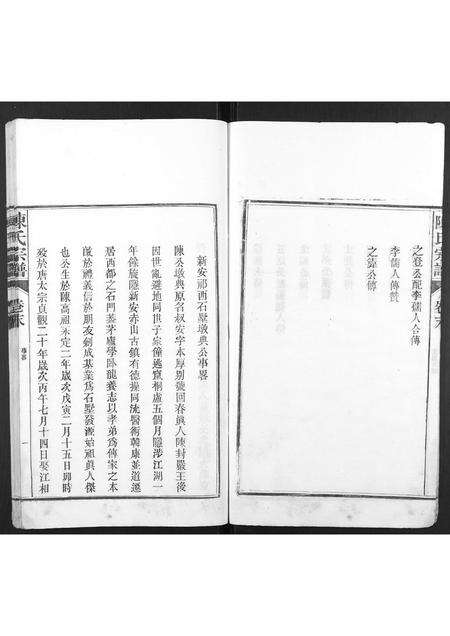 陳氏宗譜
卷末
之登公配李孺人合傳
李孺人傳贊
之 公傳
新安祁西石墅墩典公事畧
陳公墩典原名叔安字本厚別號回春眞人陳封嚴王後
因世亂避地同世子宗 逃竄桐廬五個月隱涉江湖一
年餘旋隱新安赤山古鎮有德操同流醫術 康並道遷
居西都之石門茶茅廬學臥龍養志以孝弟爲傳家之本
敬於禮義信於朋友創成基業爲石墅發源始祖眞人傑
也公生於陳高祖永定二年歲次戊寅二月十五日卯時
歿於唐太宗貞觀二十年歲次丙午七月十四日娶江相
陳氏宗譜
卷末
事畧
一